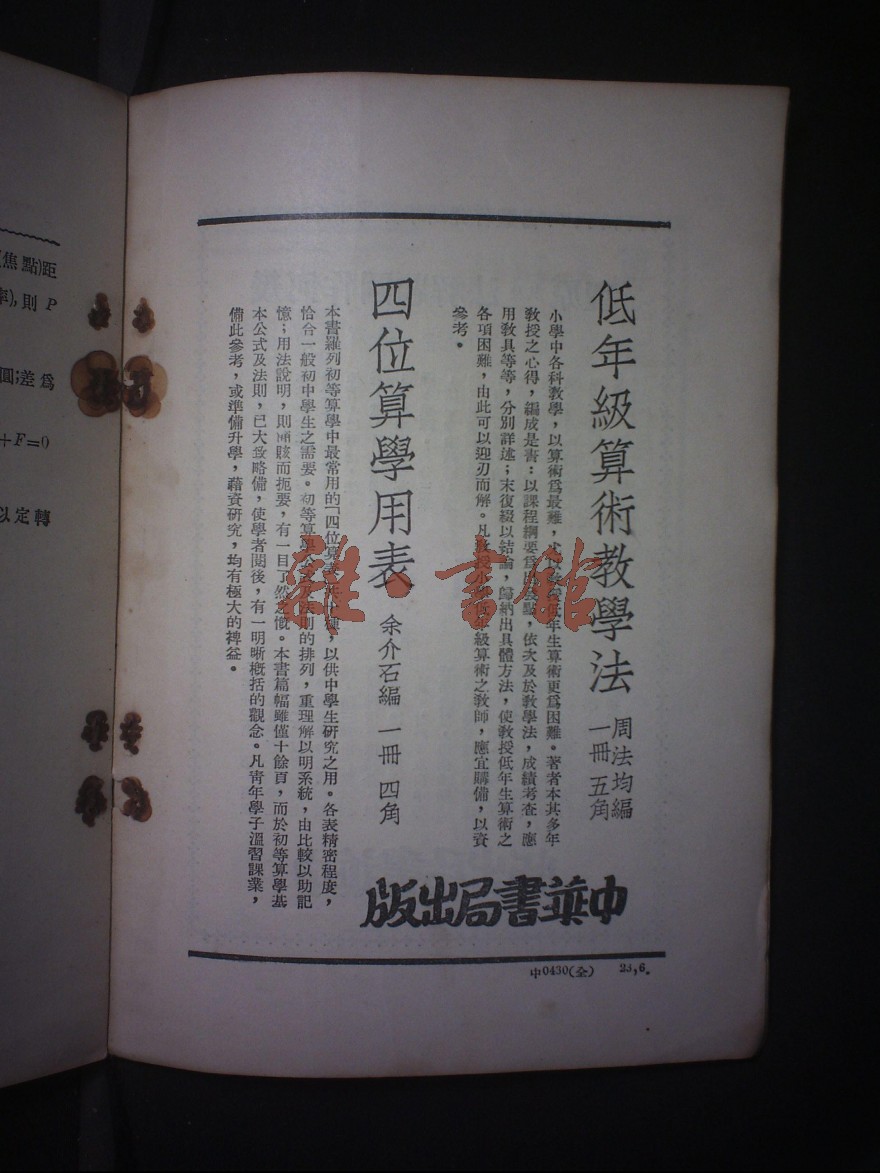 低年級算術教學法
周法均編
一冊 五角
小學中各科教學，以算術爲最難，低年生算術更爲困難。著者本其多年
教授之心得，編成是書：以課程綱要爲出發點，依次及於教學法，成績考查，應
用教具等等，分別詳述；末復綴以結論，歸納出具體方法，使教授低年生算術之
各項困難，由此可以迎刃而解。凡教授小學低年級算術之教師，應宜購備，以資
參考。
四位算學用表
余介石編 一冊 四角
本書羅列初等算學中最常用的「四位算表，以供中學生研究之用。各表精密程度，
恰合一般初中學生之需要。初等算學公式及法則的排列，重理解以明系統，由比較以助記
憶；用法說明，則簡賅而扼要，有一目了然之慨。本書篇幅雖僅十餘頁，而於初等算學基
本公式及法則，已大致略備，使學者閱後，有一明晰概括的觀念。凡青年學子溫習課業，
備此參考，或準備升學，藉資研究，均有極大的裨益。
中華書局出版
中0430(全) 23,6.
焦點)距
率),則 P
圓;差爲
+F=0
以定轉
雜·書館